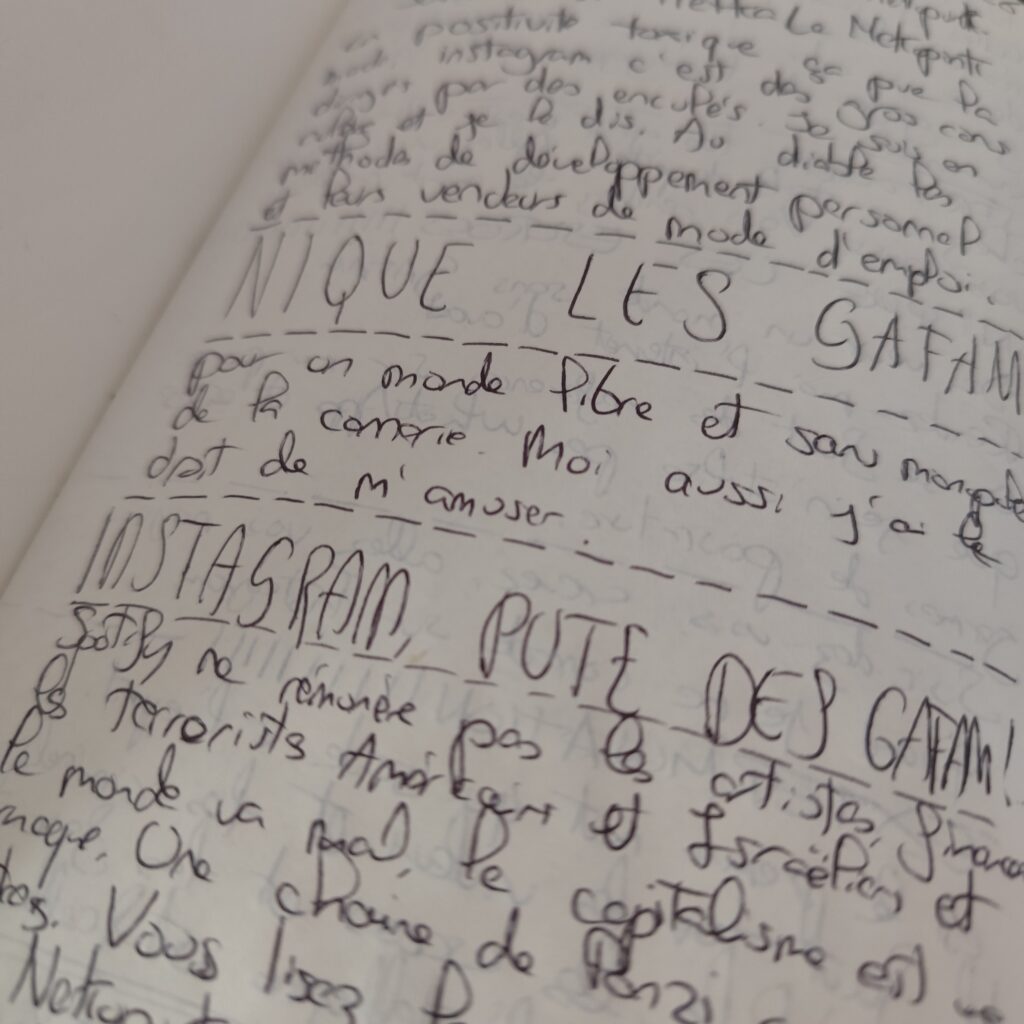 positivité toxique ça pue la
instagram c'est des gros cons
par des enculés. Je suis en
et je le dis. Au diable les
méthode de développement personnel
et leurs vendeurs de mode d'emploi.
NIQUE LES GAFAM
pour un monde libre et sans
de la connerie. Moi aussi j'ai le
doit de m'amuser.
INSTAGRAM, PUTE DES GAFAM!
Spotify ne rémunère pas les artistes, finance
les terrorists Américains et Israéliens et
le monde va mal, le capitalisme est
Une chaine de Ponzi
Vous lisez